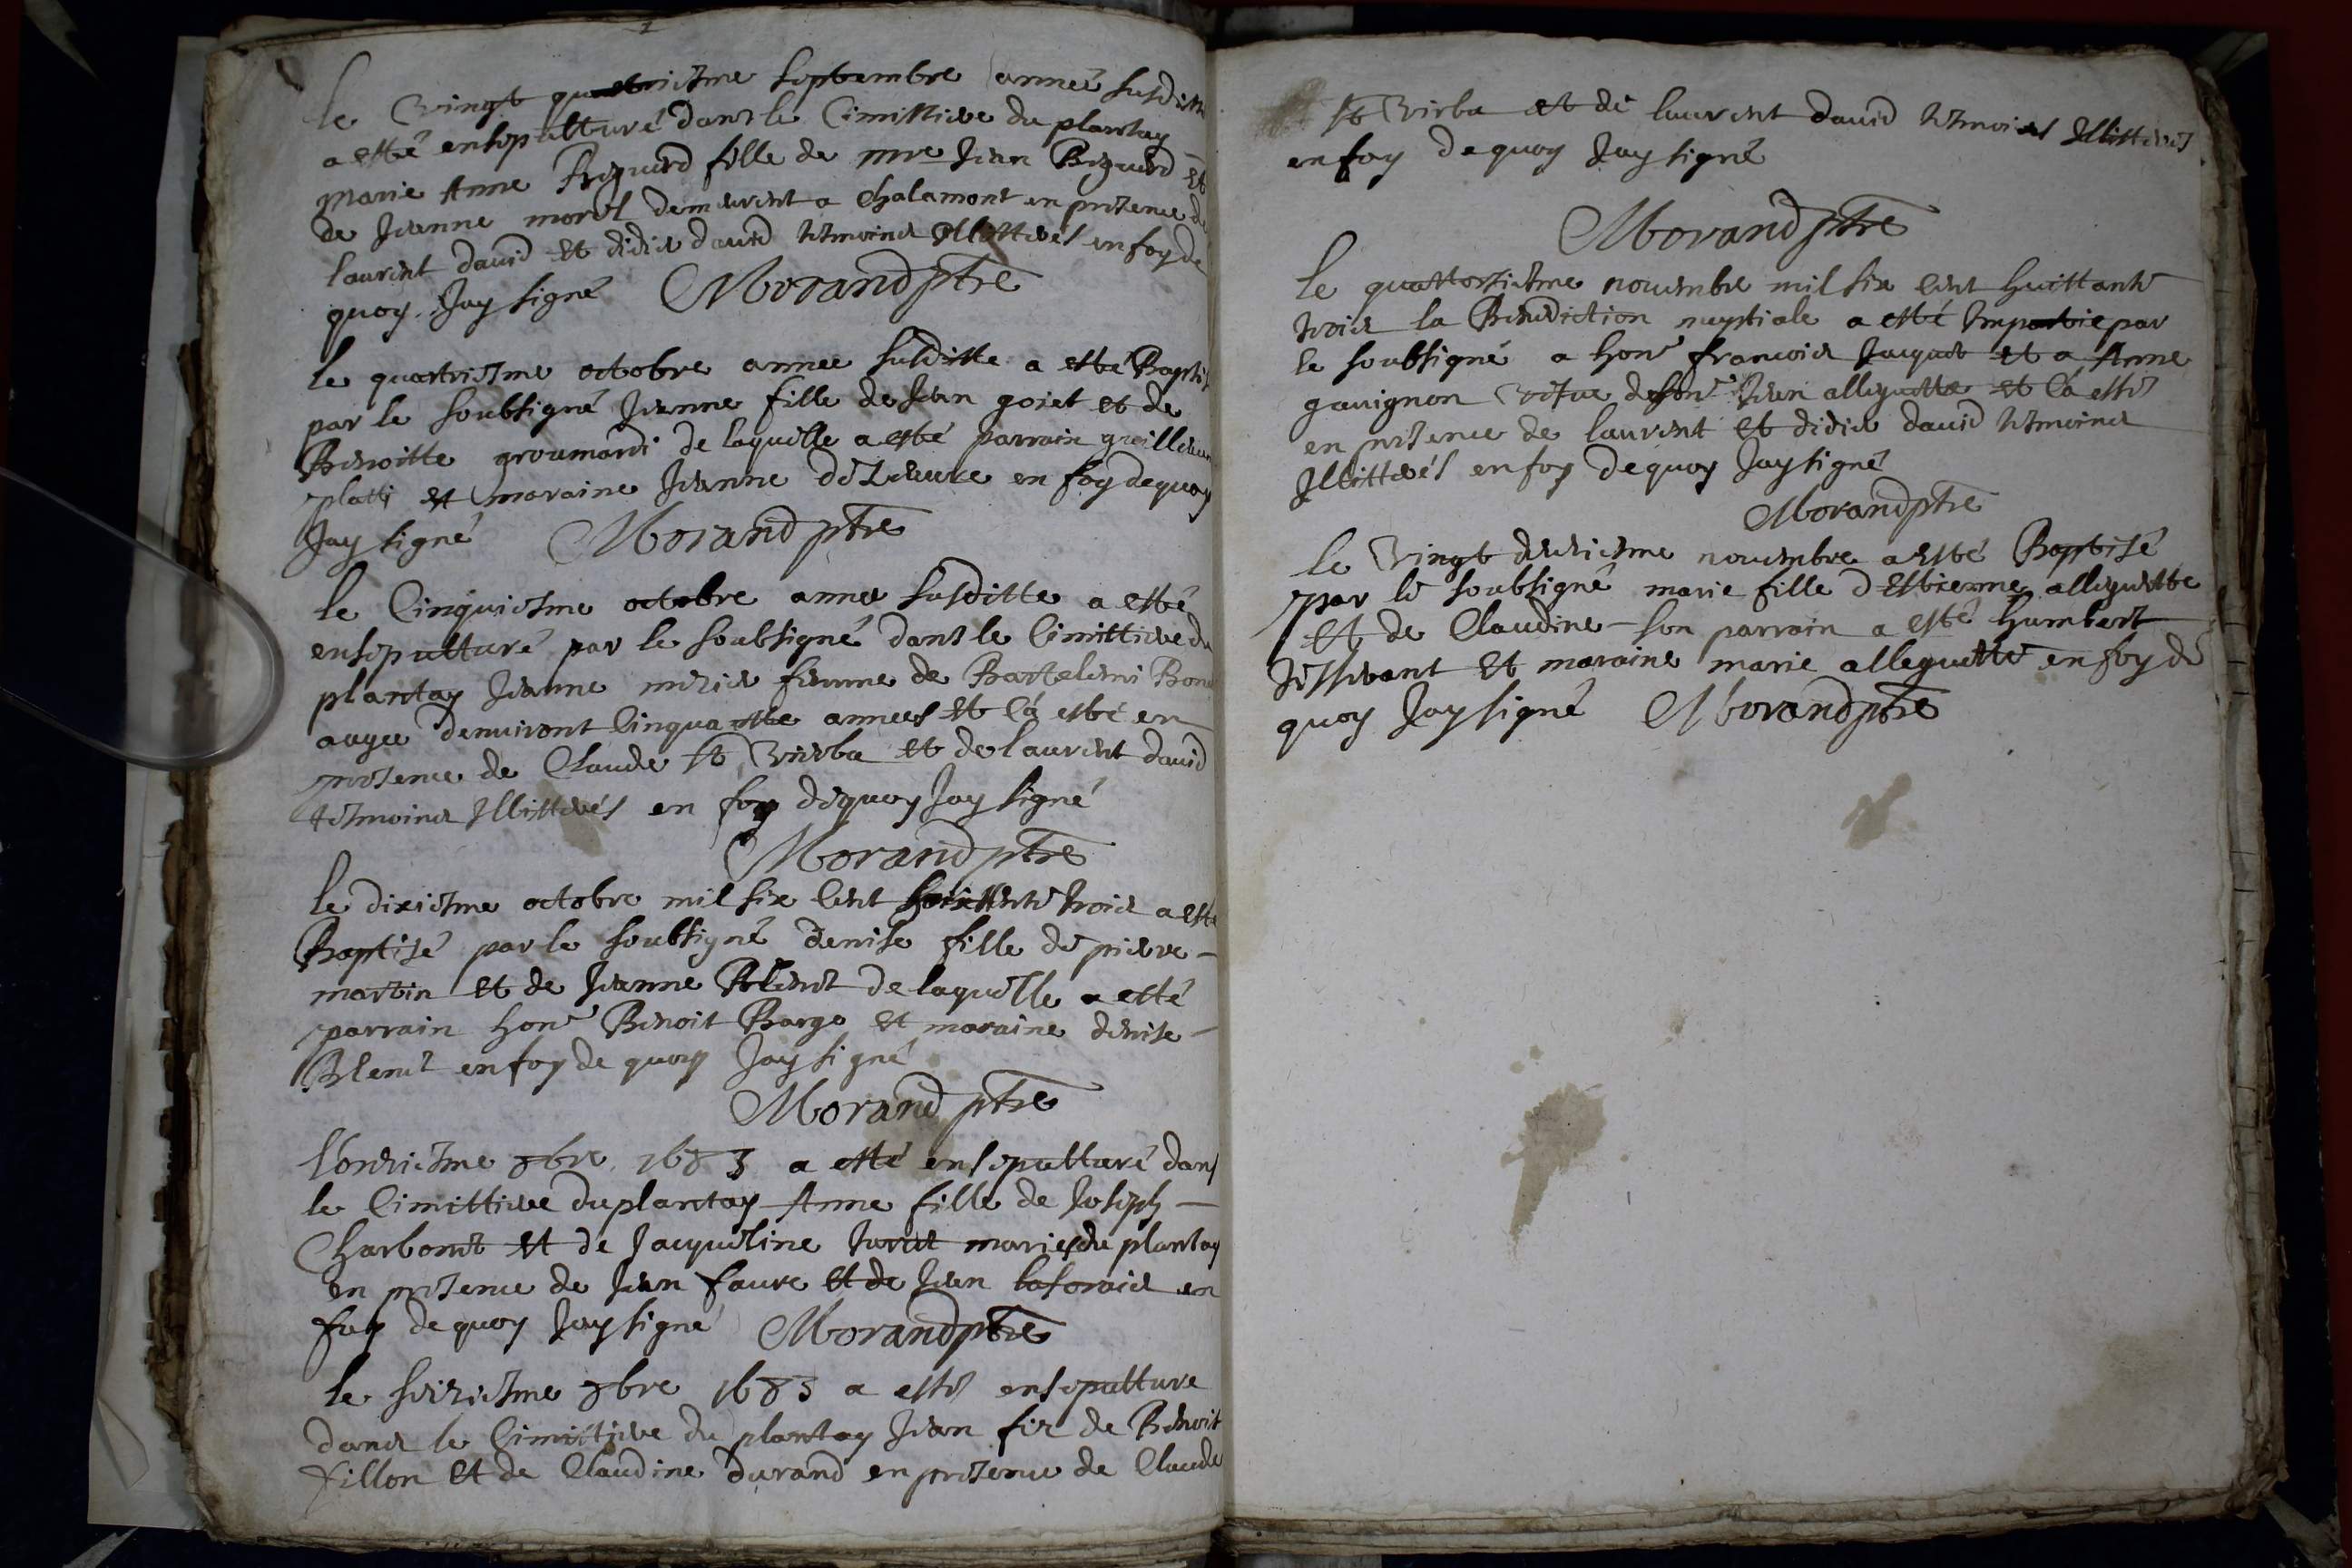 le vingt quatriesme septembre année susditte
a esté ensepulturé dans le Cimittiere du plantay
Marie Anne fille de mre Jean et
de Jeanne morel demeurent a Chalamont en presence de
laurent david et didier david tesmoins Illitterés en foy de
quoy Jay signé Morand ptre
le quatriesme octobre annee susditte a esté Baptisé
par le soubsigné Jeanne fille de Jean goiet et de
Benoitte groumand de laquelle a esté parrain guilleaume
platti et maraine Jeanne en foy de quoy
Jay signé Morand ptre
le Cinquiesme octobre annee susditte a esté
ensepulturé par le soubsigné dans le Cimittiere du
plantay Jeanne femme de Bartelemi
augee denviront Cinquantte annees et Cá esté en
presence de Claude st et de laurent david
tesmoins Illitterés en foy de quoy Jay signé
Morand ptre
le dixiesme octobre mil six Cent huittente trois a esté
Baptisé par le soubsigné denise fille de pierre
martin et de Jeanne Blenet de laquelle a esté
parrain hone Benoit Barge et maraine denise
Blenet en foy de quoy Jay signé
Morand ptre
l'onziesme 8bre 1683 a esté ensepulturé dans
le Cimittiere du plantay Anne fille de Joseph
Charbonet et de Jacqueline mariés du plantay
en presence de Jean faure et de Jean en
foy de quoy Jay signé Morand ptre
le seiziesme 8bre 1683 a esté ensepulture
dans le Cimittiere du plantay Jean fis de Benoit
fillon et de Claudine durand en presence de Claude
st et de laurent david tesmoins Illitterés
en foy de quoy Jay signé
Morand ptre
le quattorsiesme novembre mil six Cent huittante
trois la Benediction nuptiale a esté Impartie par
le soubsigné a hone francois Jacquet et a Anne
gavignon vefve de hone Jean alleguette et Cá esté
en presence de laurent et didier david tesmoins
Illitterés en foy de quoy Jay signé
Morand ptre
le vingt deuxiesme novembre a esté Baptisé
par le soubsigné marie fille d'Estienne alleguette
et de Claudine son parrain a esté humbert
et maraine marie alleguette en foy de
quoy Jay signé Morand ptre